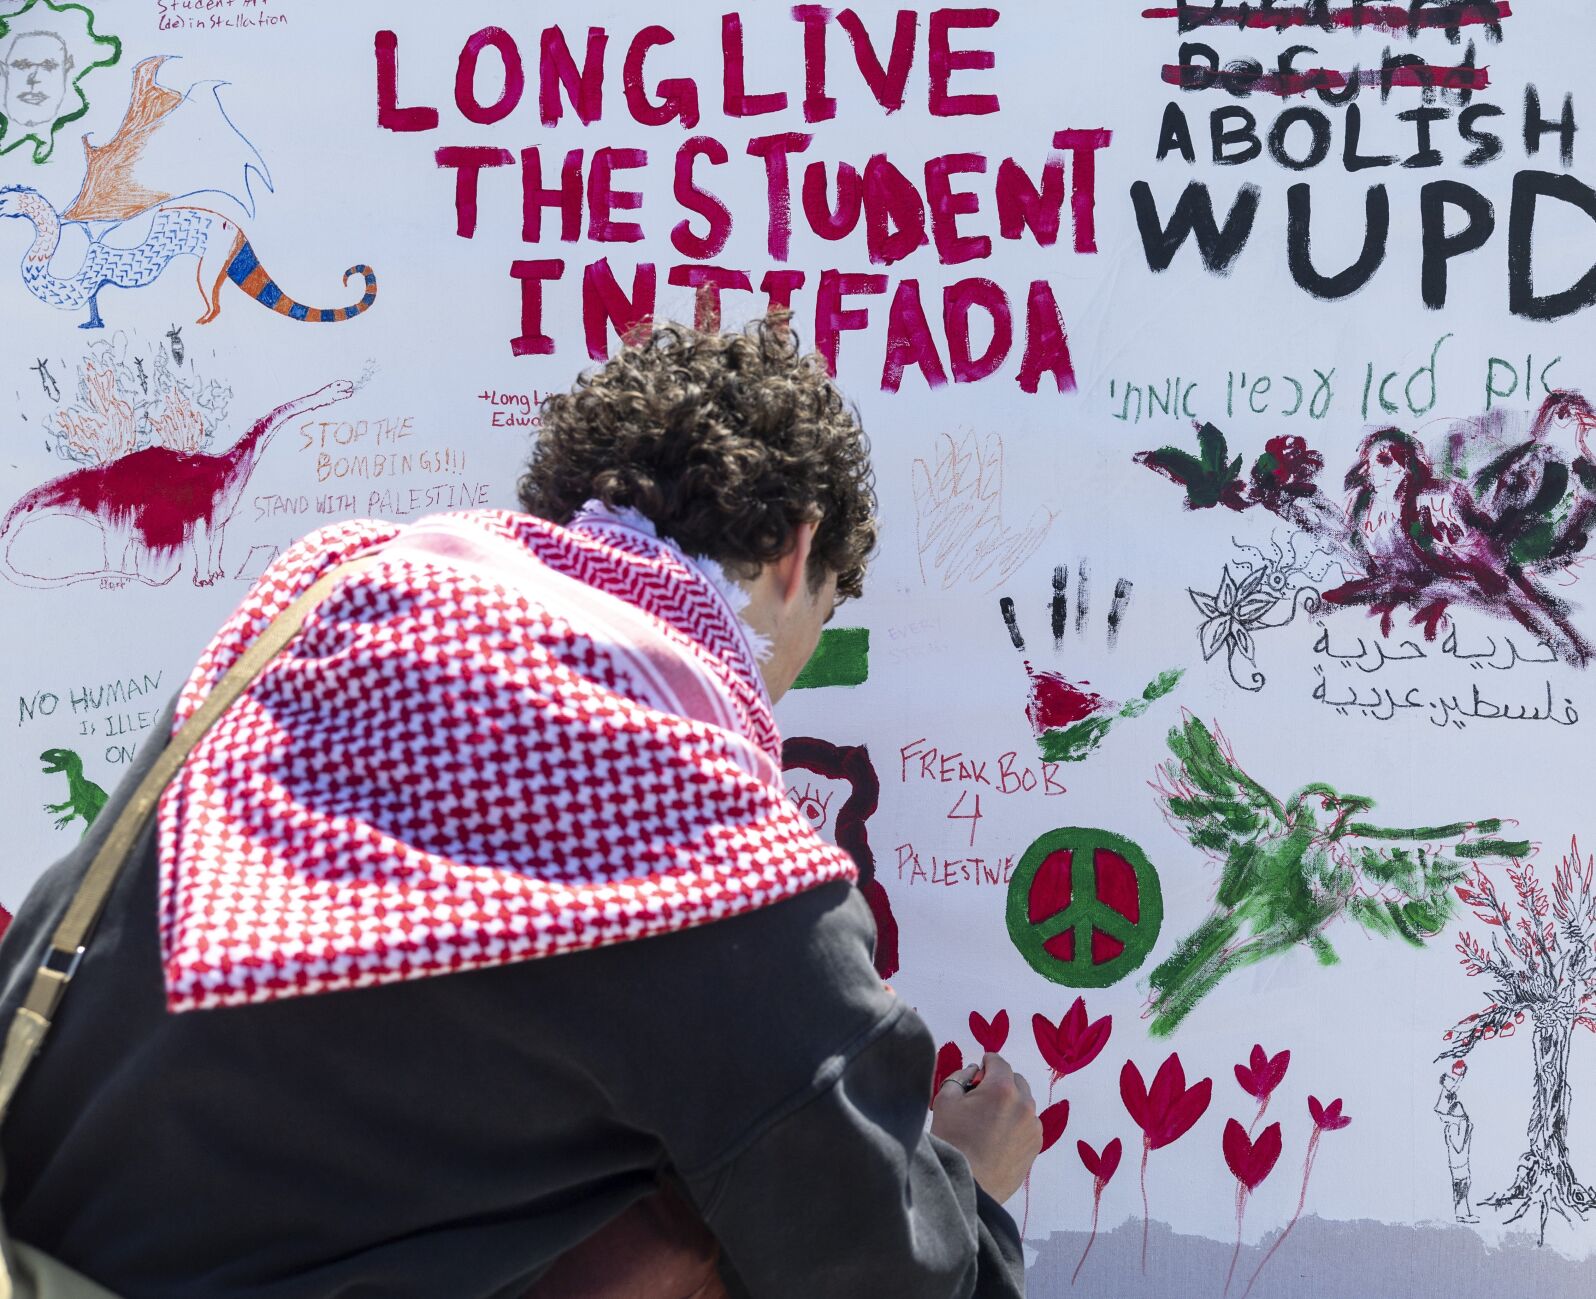 Student Art
(de)installation
LONG LIVE
THE STUDENT
INTIFADA
Defund
ABOLISH
WUPD
אם לא עכשיו אמתי
+Long Li
Edwa
STOP THE
BOMBINGS!!!
STAND WITH PALESTINE
حرية حرية
فلسطين عربية
NO HUMAN
IS ILLEG
ON
EVERY
FREAK BOB
4
PALESTINE